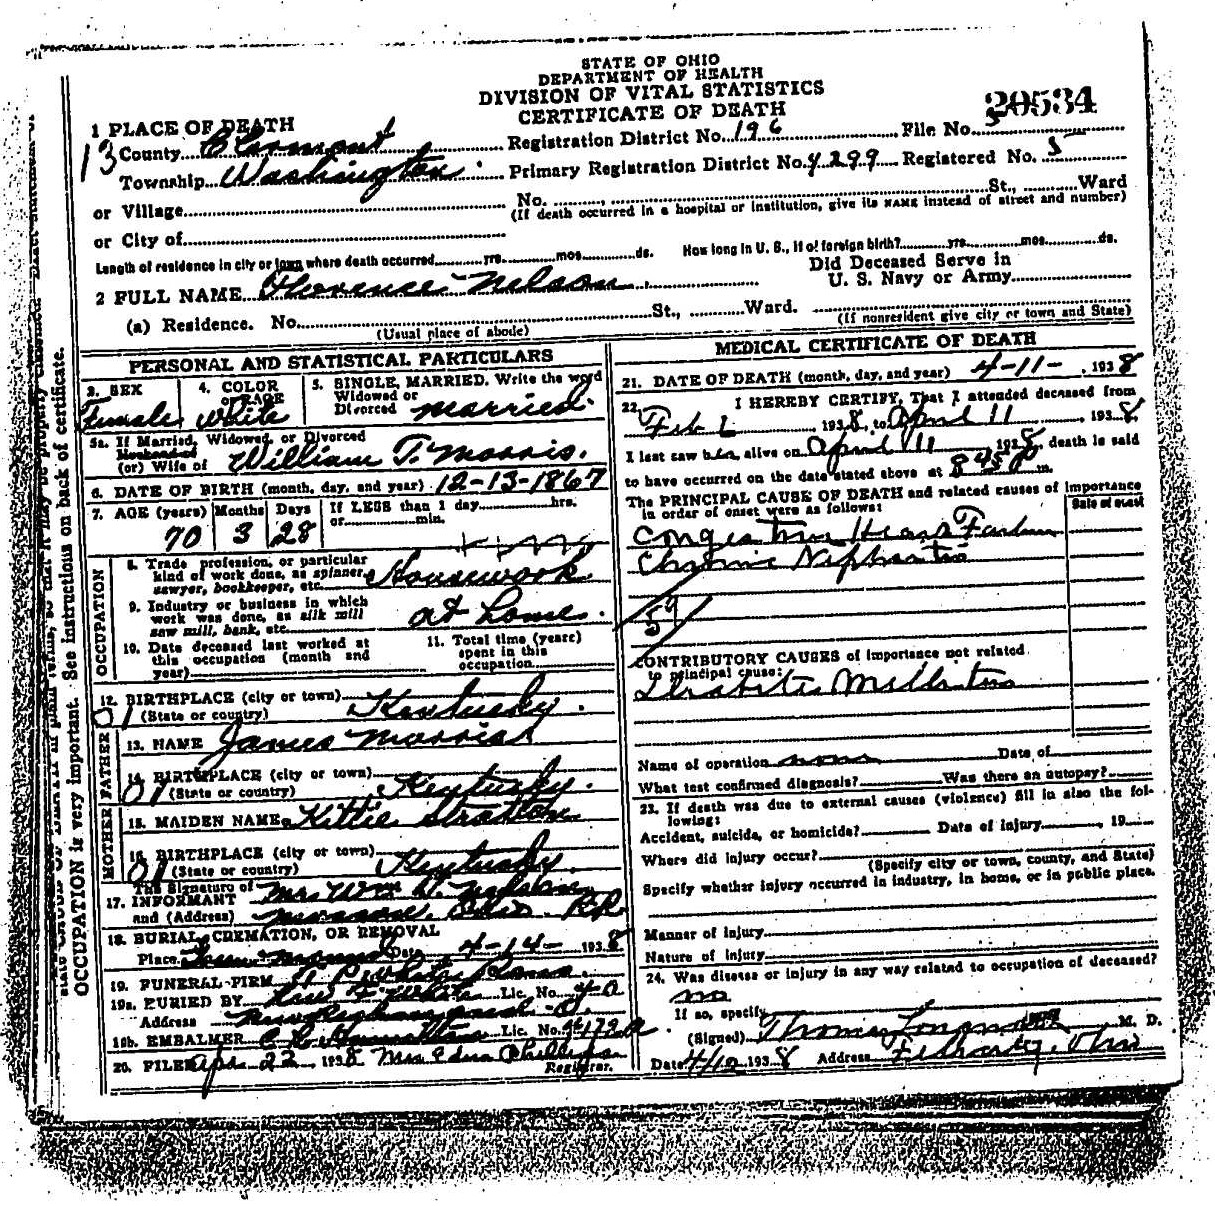 STATE OF OHIO
DEPARTMENT OF HEALTH
DIVISION OF VITAL STATISTICS
CERTIFICATE OF DEATH
20534
1 PLACE OF DEATH
13 County Clermont Registration District No. 196 File No.
Township Washington Primary Registration District No. 4299 Registered No. 5
or Village No. St., Ward
(If death occurred in a hospital or institution, give its NAME instead of street and number)
or City of
Length of residence in city or town where death occurred yrs. mos. ds. How long in U. S., if of foreign birth? yrs. mos. ds.
Did Deceased Serve in
U. S. Navy or Army
2 FULL NAME Florence Nelson
(a) Residence. No. St., Ward.
(Usual place of abode) (If nonresident give city or town and State)
PERSONAL AND STATISTICAL PARTICULARS
3. SEX Female
4. COLOR or RACE White
5. SINGLE, MARRIED, Write the word
Widowed or
Divorced married
5a. If Married, Widowed, or Divorced
Husband of
(or) Wife of William T. Morris.
6. DATE OF BIRTH (month, day, and year) 12-13-1867
7. AGE (years) 70 Months 3 Days 28 If LESS than 1 day hrs.
or min.
OCCUPATION
8. Trade profession, or particular
kind of work done, as spinner,
sawyer, bookkeeper, etc. Housework
9. Industry or business in which
work was done, as silk mill
saw mill, bank, etc. at home.
10. Date deceased last worked at
this occupation (month and
year)
11. Total time (years)
spent in this
occupation
12. BIRTHPLACE (city or town)
01 (State or country) Kentucky.
FATHER
13. NAME James Morris
14. BIRTHPLACE (city or town)
01 (State or country) Kentucky.
MOTHER
15. MAIDEN NAME Kittie Stratton
16. BIRTHPLACE (city or town)
01 (State or country) Kentucky.
The Signature of
17. INFORMANT Mrs Wm
and (Address) Ohio R.R.
18. BURIAL, CREMATION, OR REMOVAL
Place Date 4-14- 1938
19. FUNERAL FIRM White
19a. BURIED BY F. White Lic. No.
Address New Richmond O.
19b. EMBALMER Lic. No. 4172a
20. FILED Apr 22, 1938 Mrs Edna Phillips
Registrar.
MEDICAL CERTIFICATE OF DEATH
21. DATE OF DEATH (month, day, and year) 4-11-, 1938
22. I HEREBY CERTIFY, That I attended deceased from
Feb , 1938, to April 11, 1938
I last saw her alive on April 11, 1938 death is said
to have occurred on the date stated above at 8 45 P m.
The PRINCIPAL CAUSE OF DEATH and related causes of importance
in order of onset were as follows:
Date of onset
Congestive Heart Failure
Chronic Nephritis
59
CONTRIBUTORY CAUSES of importance not related
to principal cause:
Diabetes Mellitus
Name of operation none Date of
What test confirmed diagnosis? Was there an autopsy?
23. If death was due to external causes (violence) fill in also the fol-
lowing:
Accident, suicide, or homicide? Date of injury , 19
Where did injury occur?
(Specify city or town, county, and State)
Specify whether injury occurred in industry, in home, or in public place.
Manner of injury
Nature of injury
24. Was disease or injury in any way related to occupation of deceased?
no
If so, specify
(Signed) Thomas M. D.
Date 4/12 1938 Address Felicity, Ohio
OCCUPATION is very important. See instructions on back of certificate.